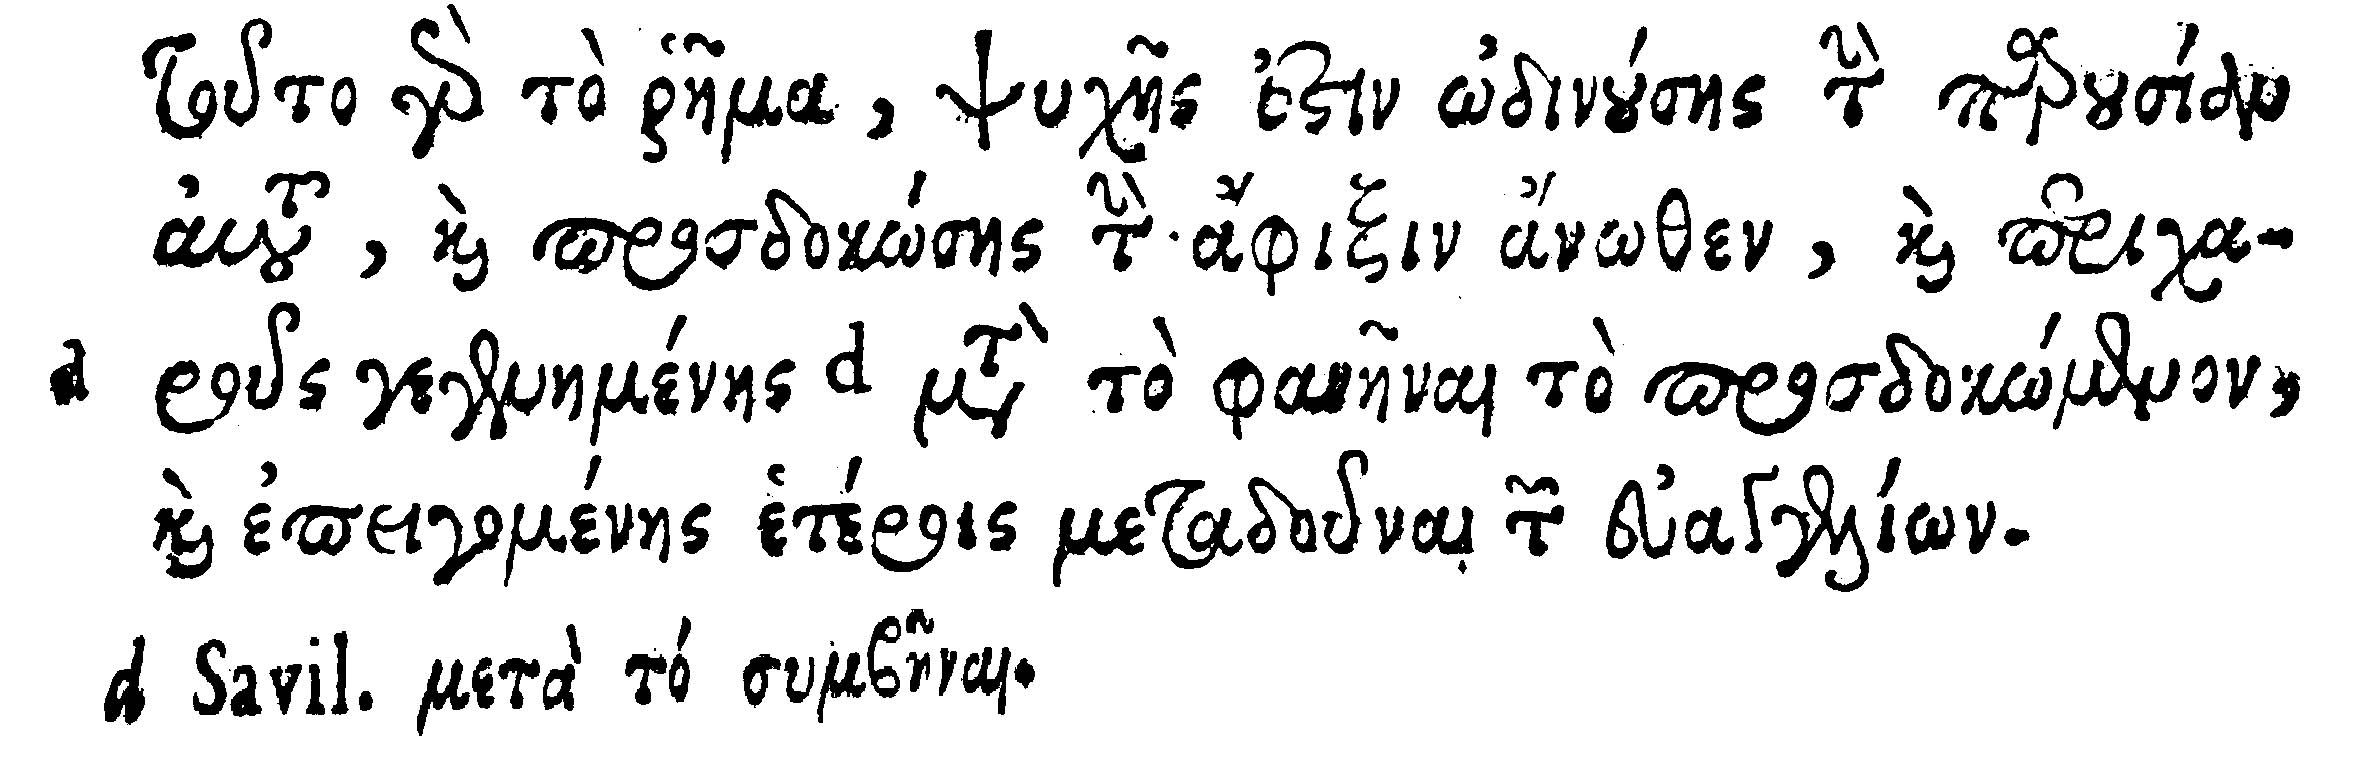 Τοῦτο γὰρ τὸ ῥῆμα, ψυχῆς ἐστιν ὠδινούσης τὴν παρουσίαν
αὐτοῦ, καὶ προσδοκώσης τὴν ἄφιξιν ἄνωθεν, καὶ περιχα-
d ροῦς γεγενημένης d μετὰ τὸ φανῆναι τὸ προσδοκώμενον,
καὶ ἐπειγομένης ἑτέροις μεταδοῦναι τῶν εὐαγγελίων.
d Savil. μετὰ τό συμβῆναι.